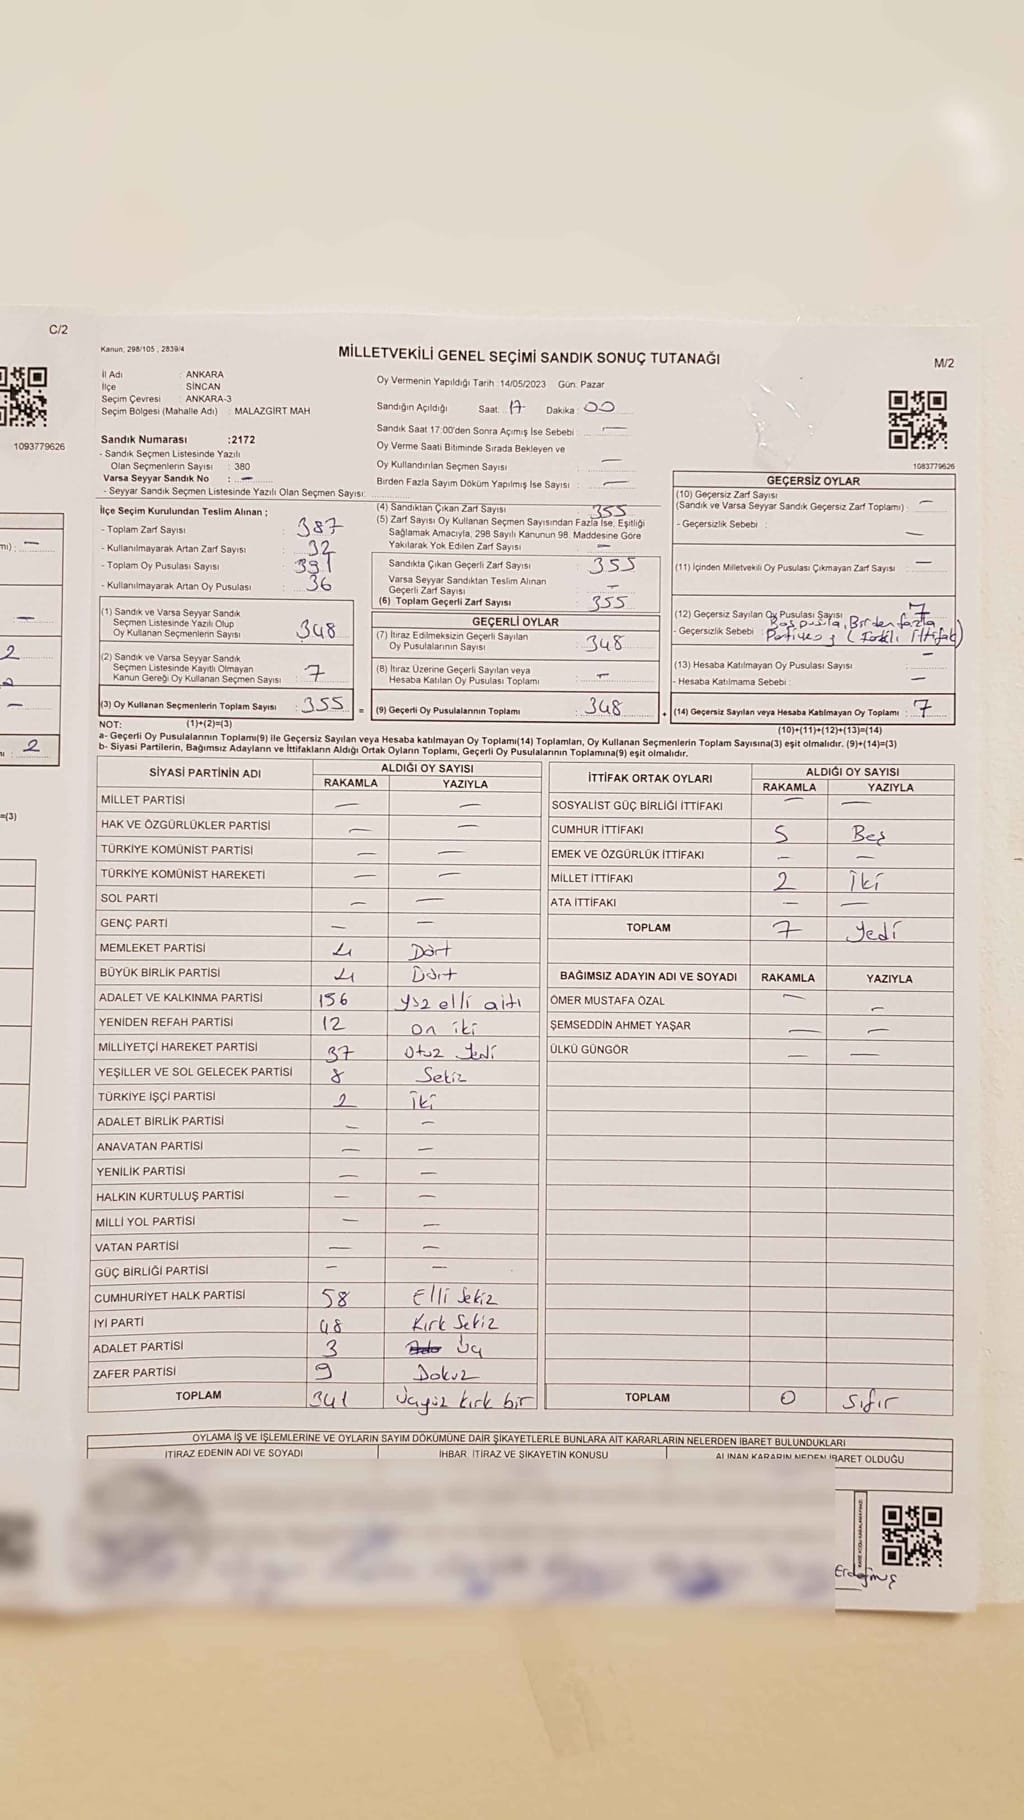 C/2
1093779626
mı) : —
—
2
—
2
=(3)
Kanun: 298/105 , 2839/4
MİLLETVEKİLİ GENEL SEÇİMİ SANDIK SONUÇ TUTANAĞI
M/2
İl Adı : ANKARA
İlçe : SİNCAN
Seçim Çevresi : ANKARA-3
Seçim Bölgesi (Mahalle Adı) : MALAZGİRT MAH
Sandık Numarası :2172
- Sandık Seçmen Listesinde Yazılı
Olan Seçmenlerin Sayısı : 380
Varsa Seyyar Sandık No : —
- Seyyar Sandık Seçmen Listesinde Yazılı Olan Seçmen Sayısı:
Oy Vermenin Yapıldığı Tarih : 14/05/2023 Gün: Pazar
Sandığın Açıldığı Saat: 17 Dakika : 00
Sandık Saat 17:00'den Sonra Açımış İse Sebebi : —
Oy Verme Saati Bitiminde Sırada Bekleyen ve
Oy Kullandırılan Seçmen Sayısı : —
Birden Fazla Sayım Döküm Yapılmış İse Sayısı : —
1083779626
İlçe Seçim Kurulundan Teslim Alınan ;
- Toplam Zarf Sayısı : 387
- Kullanılmayarak Artan Zarf Sayısı : 32
- Toplam Oy Pusulası Sayısı : 391
- Kullanılmayarak Artan Oy Pusulası : 36
(1) Sandık ve Varsa Seyyar Sandık
Seçmen Listesinde Yazılı Olup
Oy Kullanan Seçmenlerin Sayısı : 348
(2) Sandık ve Varsa Seyyar Sandık
Seçmen Listesinde Kayıtlı Olmayan
Kanun Gereği Oy Kullanan Seçmen Sayısı : 7
(3) Oy Kullanan Seçmenlerin Toplam Sayısı : 355 =
(1)+(2)=(3)
(4) Sandıktan Çıkan Zarf Sayısı : 355
(5) Zarf Sayısı Oy Kullanan Seçmen Sayısından Fazla İse, Eşitliği
Sağlamak Amacıyla, 298 Sayılı Kanunun 98. Maddesine Göre
Yakılarak Yok Edilen Zarf Sayısı : —
Sandıkta Çıkan Geçerli Zarf Sayısı : 355
Varsa Seyyar Sandıktan Teslim Alınan
Geçerli Zarf Sayısı : —
(6) Toplam Geçerli Zarf Sayısı : 355
GEÇERLİ OYLAR
(7) İtiraz Edilmeksizin Geçerli Sayılan
Oy Pusulalarının Sayısı : 348
(8) İtiraz Üzerine Geçerli Sayılan veya
Hesaba Katılan Oy Pusulası Toplamı : —
(9) Geçerli Oy Pusulalarının Toplamı : 348 +
GEÇERSİZ OYLAR
(10) Geçersiz Zarf Sayısı
(Sandık ve Varsa Seyyar Sandık Geçersiz Zarf Toplamı) : —
- Geçersizlik Sebebi : —
(11) İçinden Milletvekili Oy Pusulası Çıkmayan Zarf Sayısı : —
(12) Geçersiz Sayılan Oy Pusulası Sayısı : 7
- Geçersizlik Sebebi : Boş pusula, Birden fazla
Partiye (Farklı İttifak)
(13) Hesaba Katılmayan Oy Pusulası Sayısı : —
- Hesaba Katılmama Sebebi : —
(14) Geçersiz Sayılan veya Hesaba Katılmayan Oy Toplamı : 7
(10)+(11)+(12)+(13)=(14)
NOT:
a- Geçerli Oy Pusulalarının Toplamı(9) ile Geçersiz Sayılan veya Hesaba katılmayan Oy Toplamı(14) Toplamları, Oy Kullanan Seçmenlerin Toplam Sayısına(3) eşit olmalıdır. (9)+(14)=(3)
b- Siyasi Partilerin, Bağımsız Adayların ve İttifakların Aldığı Ortak Oyların Toplamı, Geçerli Oy Pusulalarının Toplamına(9) eşit olmalıdır.
SİYASİ PARTİNİN ADI ALDIĞI OY SAYISI
RAKAMLA YAZIYLA
MİLLET PARTİSİ — —
HAK VE ÖZGÜRLÜKLER PARTİSİ — —
TÜRKİYE KOMÜNİST PARTİSİ — —
TÜRKİYE KOMÜNİST HAREKETİ — —
SOL PARTİ — —
GENÇ PARTİ — —
MEMLEKET PARTİSİ 4 Dört
BÜYÜK BİRLİK PARTİSİ 4 Dört
ADALET VE KALKINMA PARTİSİ 156 yüz elli altı
YENİDEN REFAH PARTİSİ 12 on iki
MİLLİYETÇİ HAREKET PARTİSİ 37 Otuz Yedi
YEŞİLLER VE SOL GELECEK PARTİSİ 8 Sekiz
TÜRKİYE İŞÇİ PARTİSİ 2 İki
ADALET BİRLİK PARTİSİ — —
ANAVATAN PARTİSİ — —
YENİLİK PARTİSİ — —
HALKIN KURTULUŞ PARTİSİ — —
MİLLİ YOL PARTİSİ — —
VATAN PARTİSİ — —
GÜÇ BİRLİĞİ PARTİSİ — —
CUMHURİYET HALK PARTİSİ 58 Elli Sekiz
İYİ PARTİ 48 Kırk Sekiz
ADALET PARTİSİ 3 Üç
ZAFER PARTİSİ 9 Dokuz
TOPLAM 341 Üçyüz kırk bir
İTTİFAK ORTAK OYLARI ALDIĞI OY SAYISI
RAKAMLA YAZIYLA
SOSYALİST GÜÇ BİRLİĞİ İTTİFAKI — —
CUMHUR İTTİFAKI 5 Beş
EMEK VE ÖZGÜRLÜK İTTİFAKI — —
MİLLET İTTİFAKI 2 İki
ATA İTTİFAKI — —
TOPLAM 7 Yedi
BAĞIMSIZ ADAYIN ADI VE SOYADI RAKAMLA YAZIYLA
ÖMER MUSTAFA ÖZAL — —
ŞEMSEDDİN AHMET YAŞAR — —
ÜLKÜ GÜNGÖR — —
TOPLAM 0 Sıfır
OYLAMA İŞ VE İŞLEMLERİNE VE OYLARIN SAYIM DÖKÜMÜNE DAİR ŞİKAYETLERLE BUNLARA AİT KARARLARIN NELERDEN İBARET BULUNDUKLARI
İTİRAZ EDENİN ADI VE SOYADI İHBAR İTİRAZ VE ŞİKAYETİN KONUSU ALINAN KARARIN NEDEN İBARET OLDUĞU